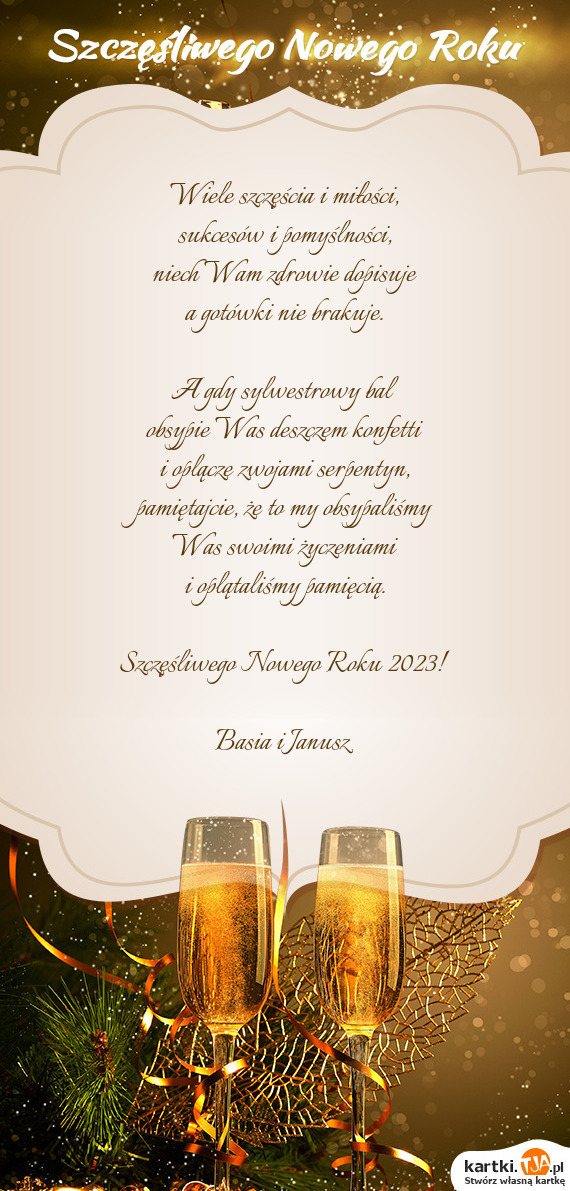 Szczęśliwego Nowego Roku
Wiele szczęścia i miłości,
sukcesów i pomyślności,
niech Wam zdrowie dopisuje
a gotówki nie brakuje.
A gdy sylwestrowy bal
obsypie Was deszczem konfetti
i oplącze zwojami serpentyn,
pamiętajcie, że to my obsypaliśmy
Was swoimi życzeniami
i oplątaliśmy pamięcią.
Szczęśliwego Nowego Roku 2023!
Basia i Janusz
kartki.TJA.pl
Stwórz własną kartkę